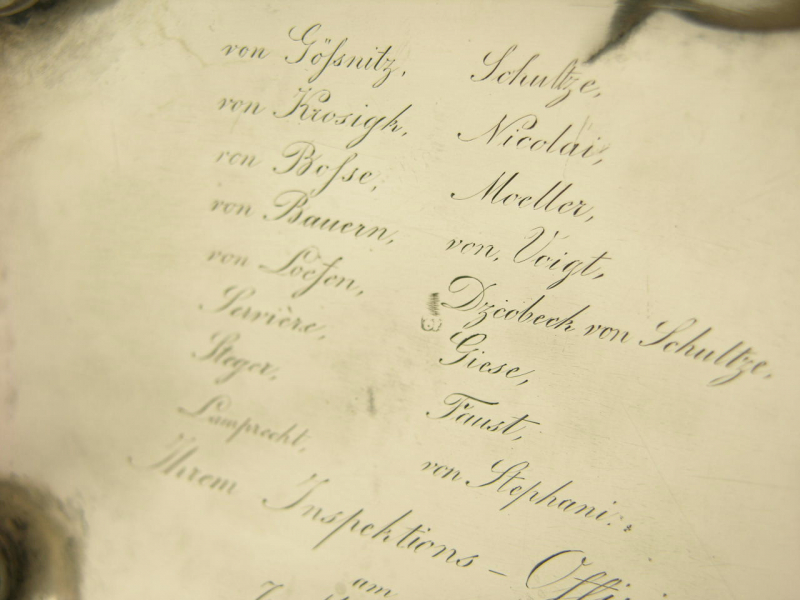 von Gößnitz,
von Krosigk,
von Boſse,
von Bauern,
von Loefen,
Servière,
Steger,
Lamprecht,
Schultze,
Nicolai,
Moeller,
von Voigt,
Dziobeck von Schultze,
Giese,
Faust,
von Stephani.
Ihrem Inspektions – Offi
am